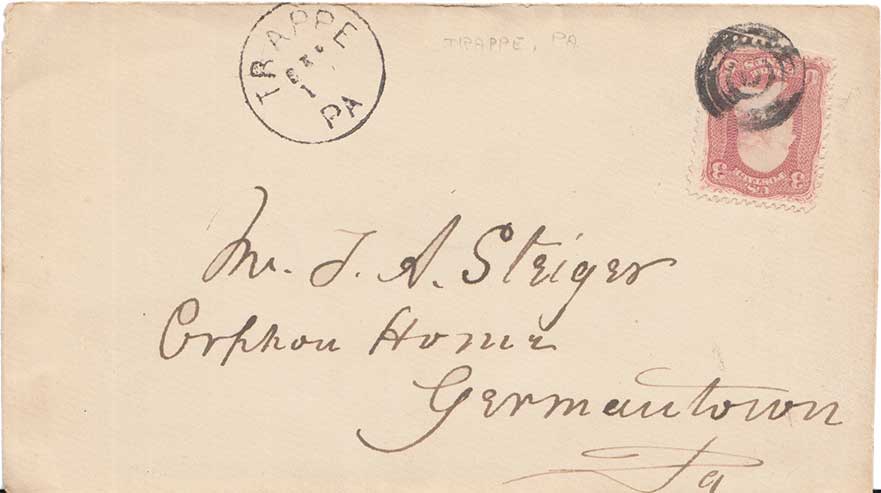 TRAPPE
1
PA
TRAPPE, PA
3 3
U S
Mr. J. A. Steiger
Orphan Home
Germantown
Pa